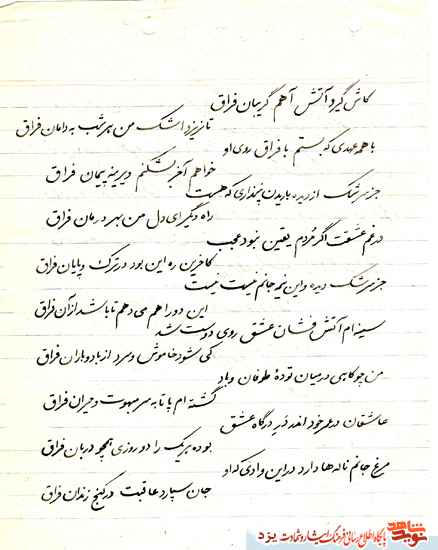 کاش گیرد آتش آهم گریبان فراق
تا نریزد اشک من هر شب به دامان فراق
با همه عهدی که بستم با فراق روی او
خواهم آخر بشکنم دیرینه پیمان فراق
جز سرشک از دیده باریدن نپنداری که هست
راه دیگر ای دل من بهر درمان فراق
در غم عشقت اگر مُردم یقین نبود عجب
کاخرین ره این بود در ترک و پایان فراق
جز سرشک دیده و این نیمه جانم نیست نیست
این دو را هم می دهم تا باشد از آن فراق
سینه ام آتش فشان عشق روی دوست شد
کی شود خاموش و سرد از باد و باران فراق
من چو کاهی در میان تودهٔ طوفان و باد
گشته ام پا تا به سر مبهوت و حیران فراق
عاشقان در عمر خود اندر درگاه عشق
بوده هر یک را دو روزی همچو دربان فراق
مرغ جانم ناله ها دارد در این وادی که او
جان سپارد عاقبت در کنج زندان فراق
نوید شاهد
پایگاه اطلاع رسانی فرهنگ ایثار و شهادت یزد